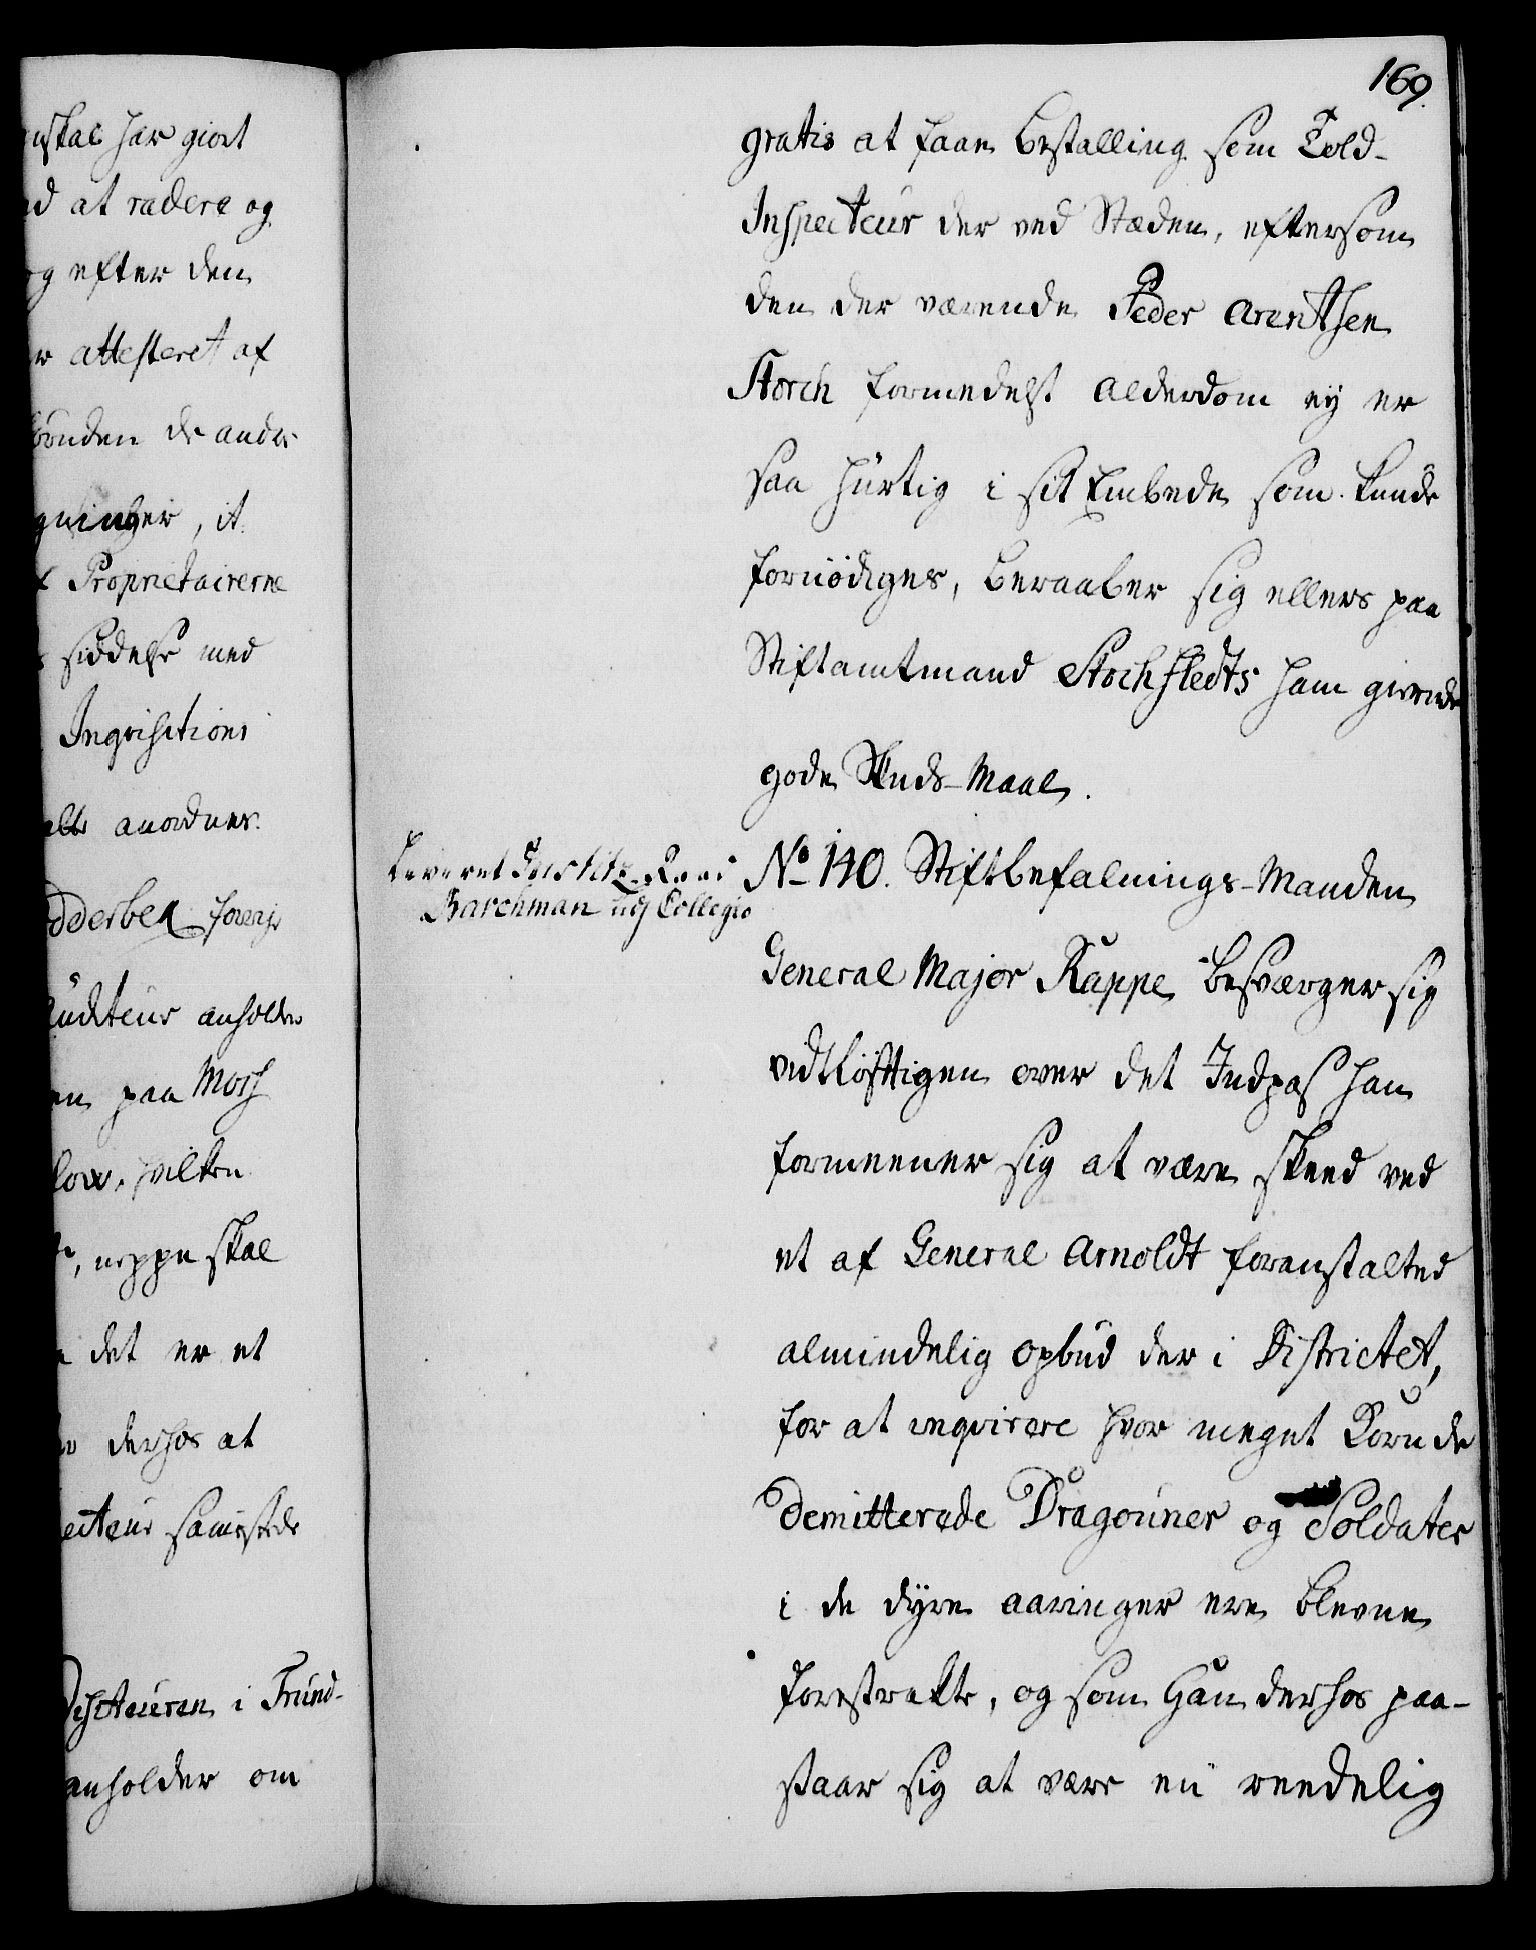 nskal har giort
ed at radere og
og efter den
er attesteret af
bönden de andre
gninger, it.
f Proprietairerne
siddelse med
Inqvisitions
alle anordner.
dderbek forrige
Auditeur anholder
en paa Morsz
low, hvilken
neppe skal
det er et
derhos at
ecteur samestede
Visiteuren i Trund-
anholder om
169.
gratis at faae Bestalling som Told-
Inspecteur der ved Stæden, eftersom
den der værende Peder Arentsen
Storch formedelst Alderdom ey er
saa hurtig i sit Embede som kunde
fornödiges, beraaber sig ellers paa
Stiftamtmand Stochfledts ham givende
gode Skuds-Maal.
Leveret Justitz-Raad
Barchman udj Collegio
No 140. Stiftbefalnings-Manden
General Major Kappe besværger sig
vidtløfftigen over det Indpas han
formeener sig at være skeed ved
et af General Arnoldt foranstalted
almindelig Opbud der i Districtet,
for at inqvirere hvor meget Korn de
Demitterede Dragouner og Soldater
i de dyre aaringer ere blevne
forestrakte, og som Han derhos paa-
staar sig at være en reedelig